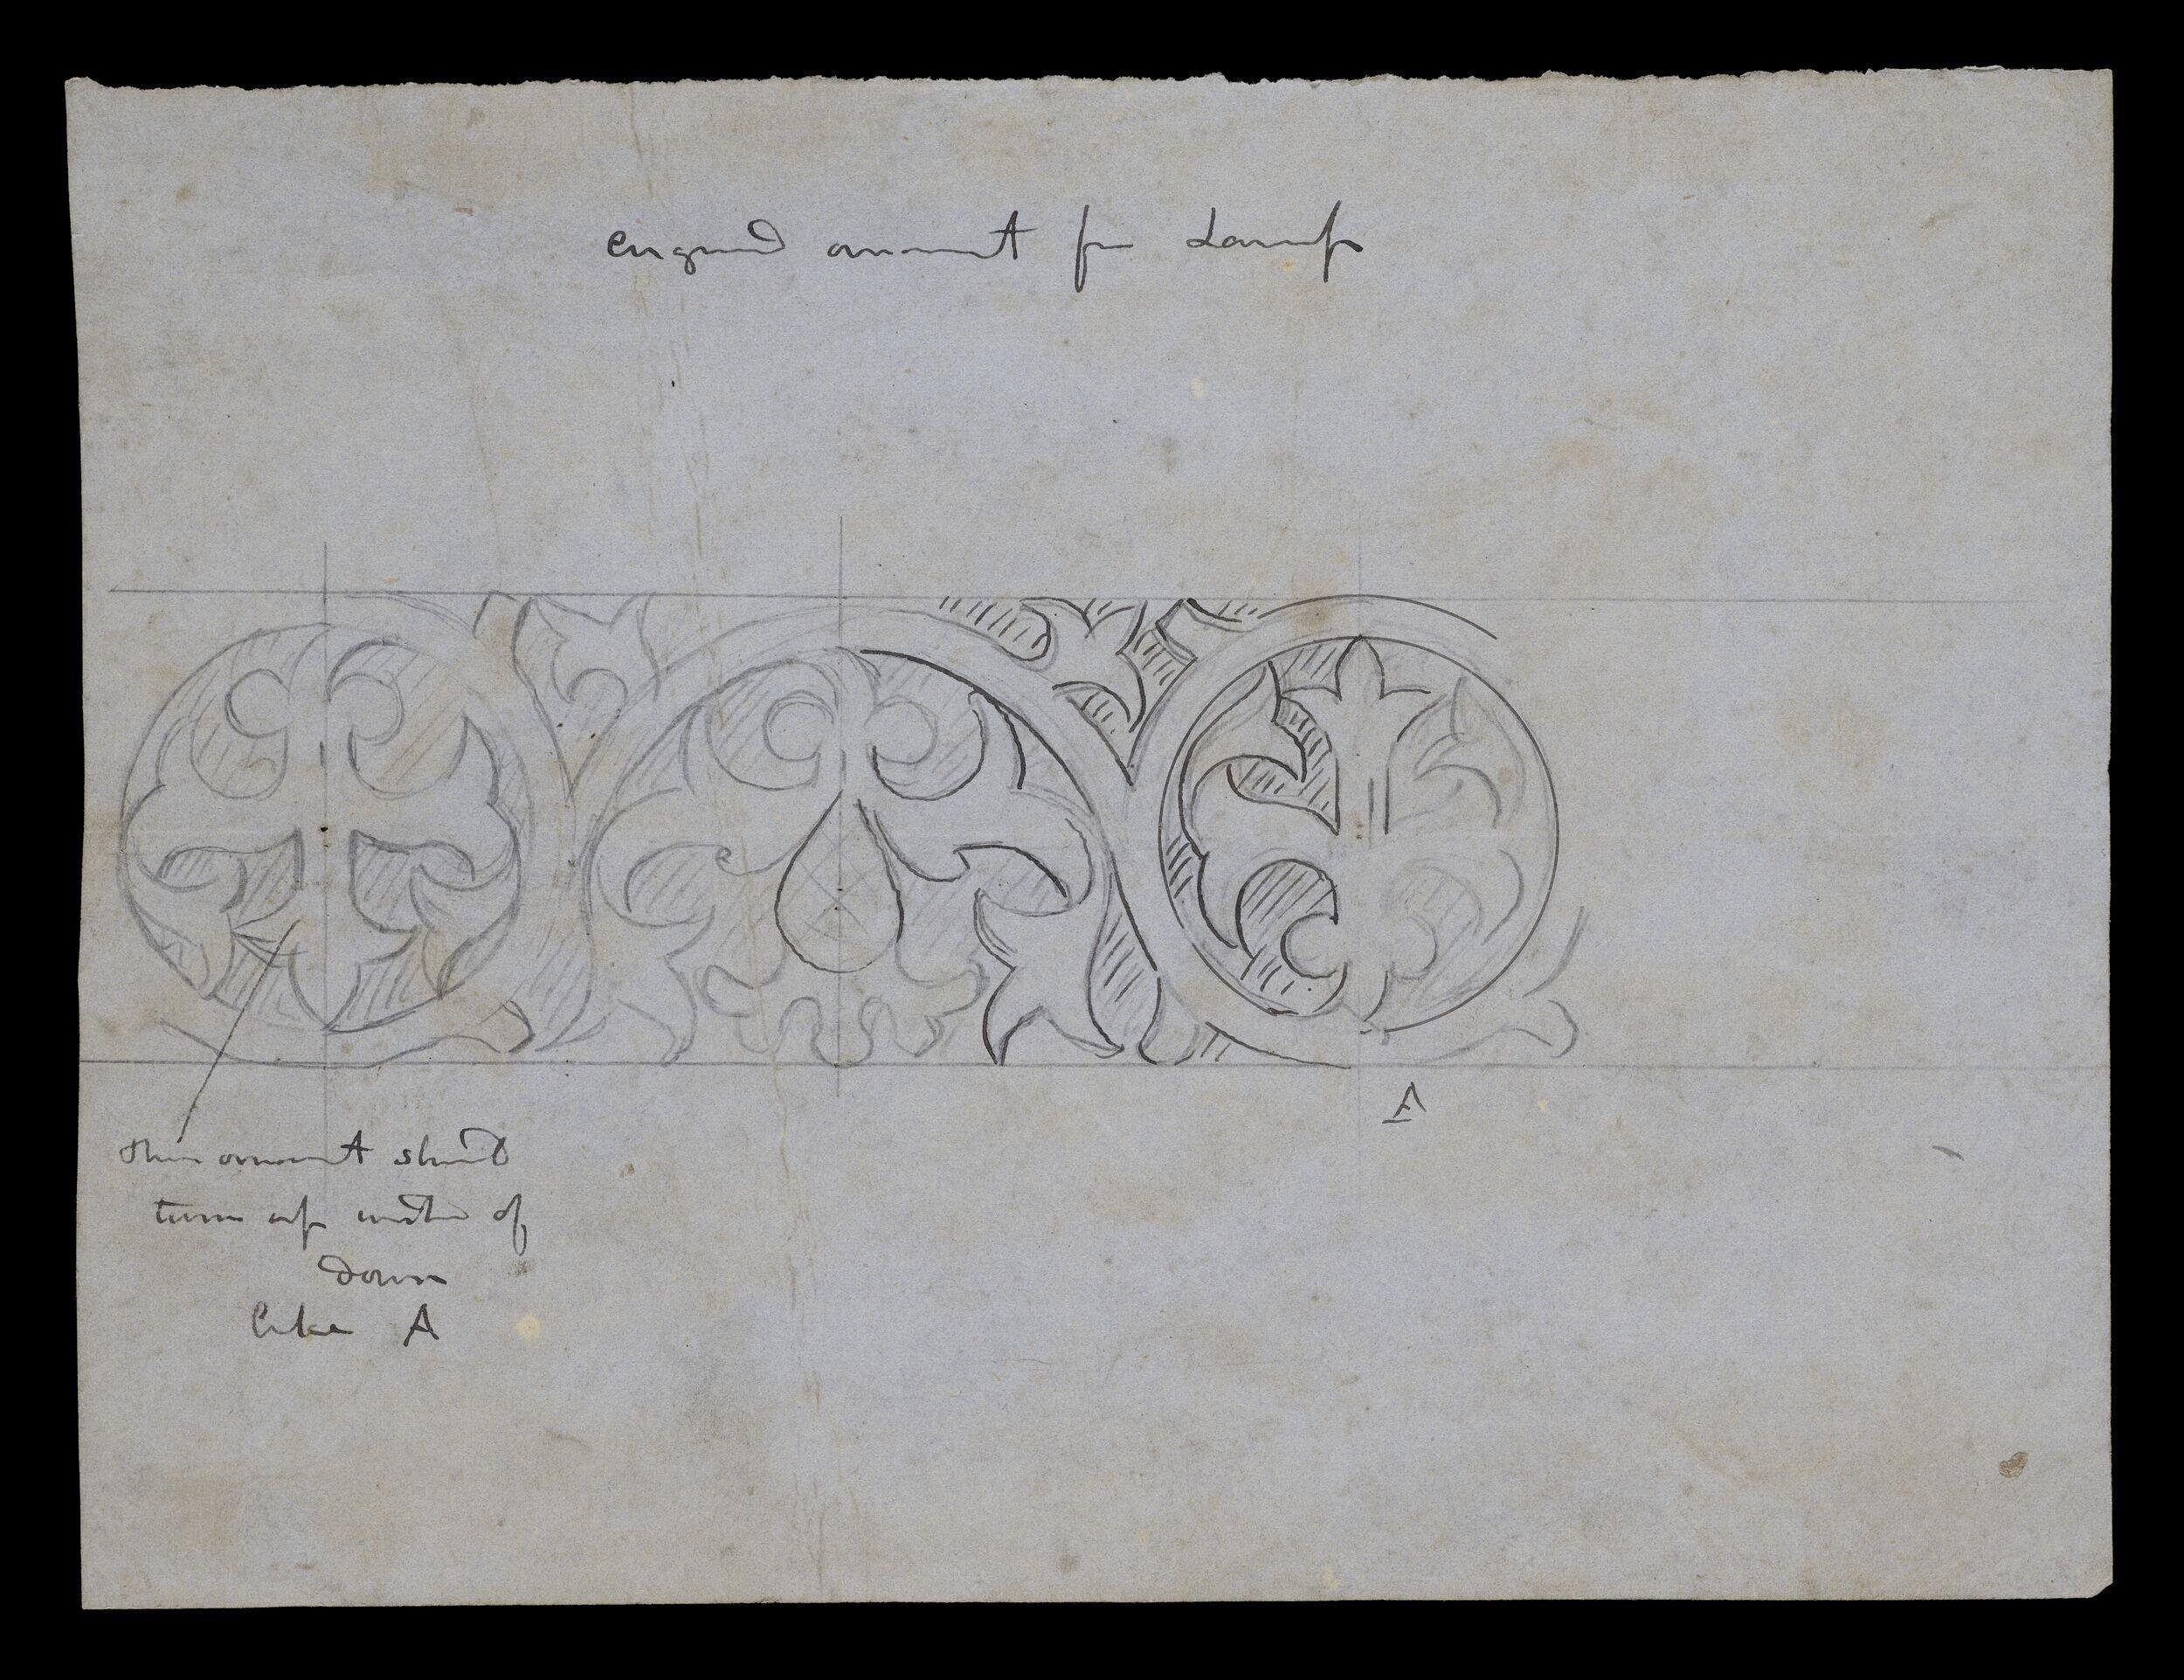 engraved ornament for Lamp
A
this ornament should
turn up instead of
down
like A